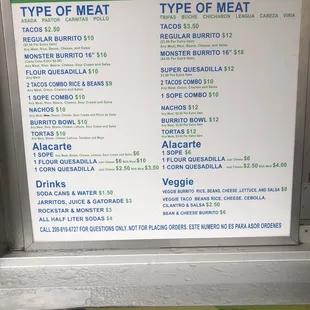 TYPE OF MEAT
ASADA PASTOR CARNITAS POLLO
TACOS $2.50
REGULAR BURRITO $10
Any Meat, Rice, Beans, Cheese, and Salsa
MONSTER BURRITO 16" $16
FLOUR QUESADILLA $10
2 TACOS COMBO RICE & BEANS $9
1 SOPE COMBO $10
NACHOS $10
BURRITO BOWL $10
TORTAS $10
Alacarte
1 SOPE $5
1 FLOUR QUESADILLA Just Cheese $6 With Meat $10
1 CORN QUESADILLA Just Cheese $2.50 With Meat $3.50
Drinks
SODA CANS & WATER $1.50
JARRITOS, JUICE & GATORADE $3
ROCKSTAR & MONSTER $3
ALL HALF LITER SODAS $4
TYPE OF MEAT
TRIPAS BUCHE CHICHARON LENGUA CABEZA VIRIA
TACOS $3.50
REGULAR BURRITO $12
MONSTER BURRITO 16" $18
SUPER QUESADILLA $12
2 TACOS COMBO $10
1 SOPE COMBO $10
NACHOS $12
BURRITO BOWL $12
TORTAS $12
Alacarte
1 SOPE $6
1 FLOUR QUESADILLA Just Cheese $6
1 CORN QUESADILLA Just Cheese $2.50 With Meat $4.00
Veggie
VEGGIE BURRITO RICE, BEANS, CHEESE, LETTUCE, AND SALSA $8
VEGGIE TACO BEANS RICE, CHEESE, CEBOLLA,
CILANTRO & SALSA $2.50
BEAN & CHEESE BURRITO $6
CALL 209-819-6727 FOR QUESTIONS ONLY. NOT FOR PLACING ORDERS. ESTE NUMERO NO ES PARA ASOR ORDENES